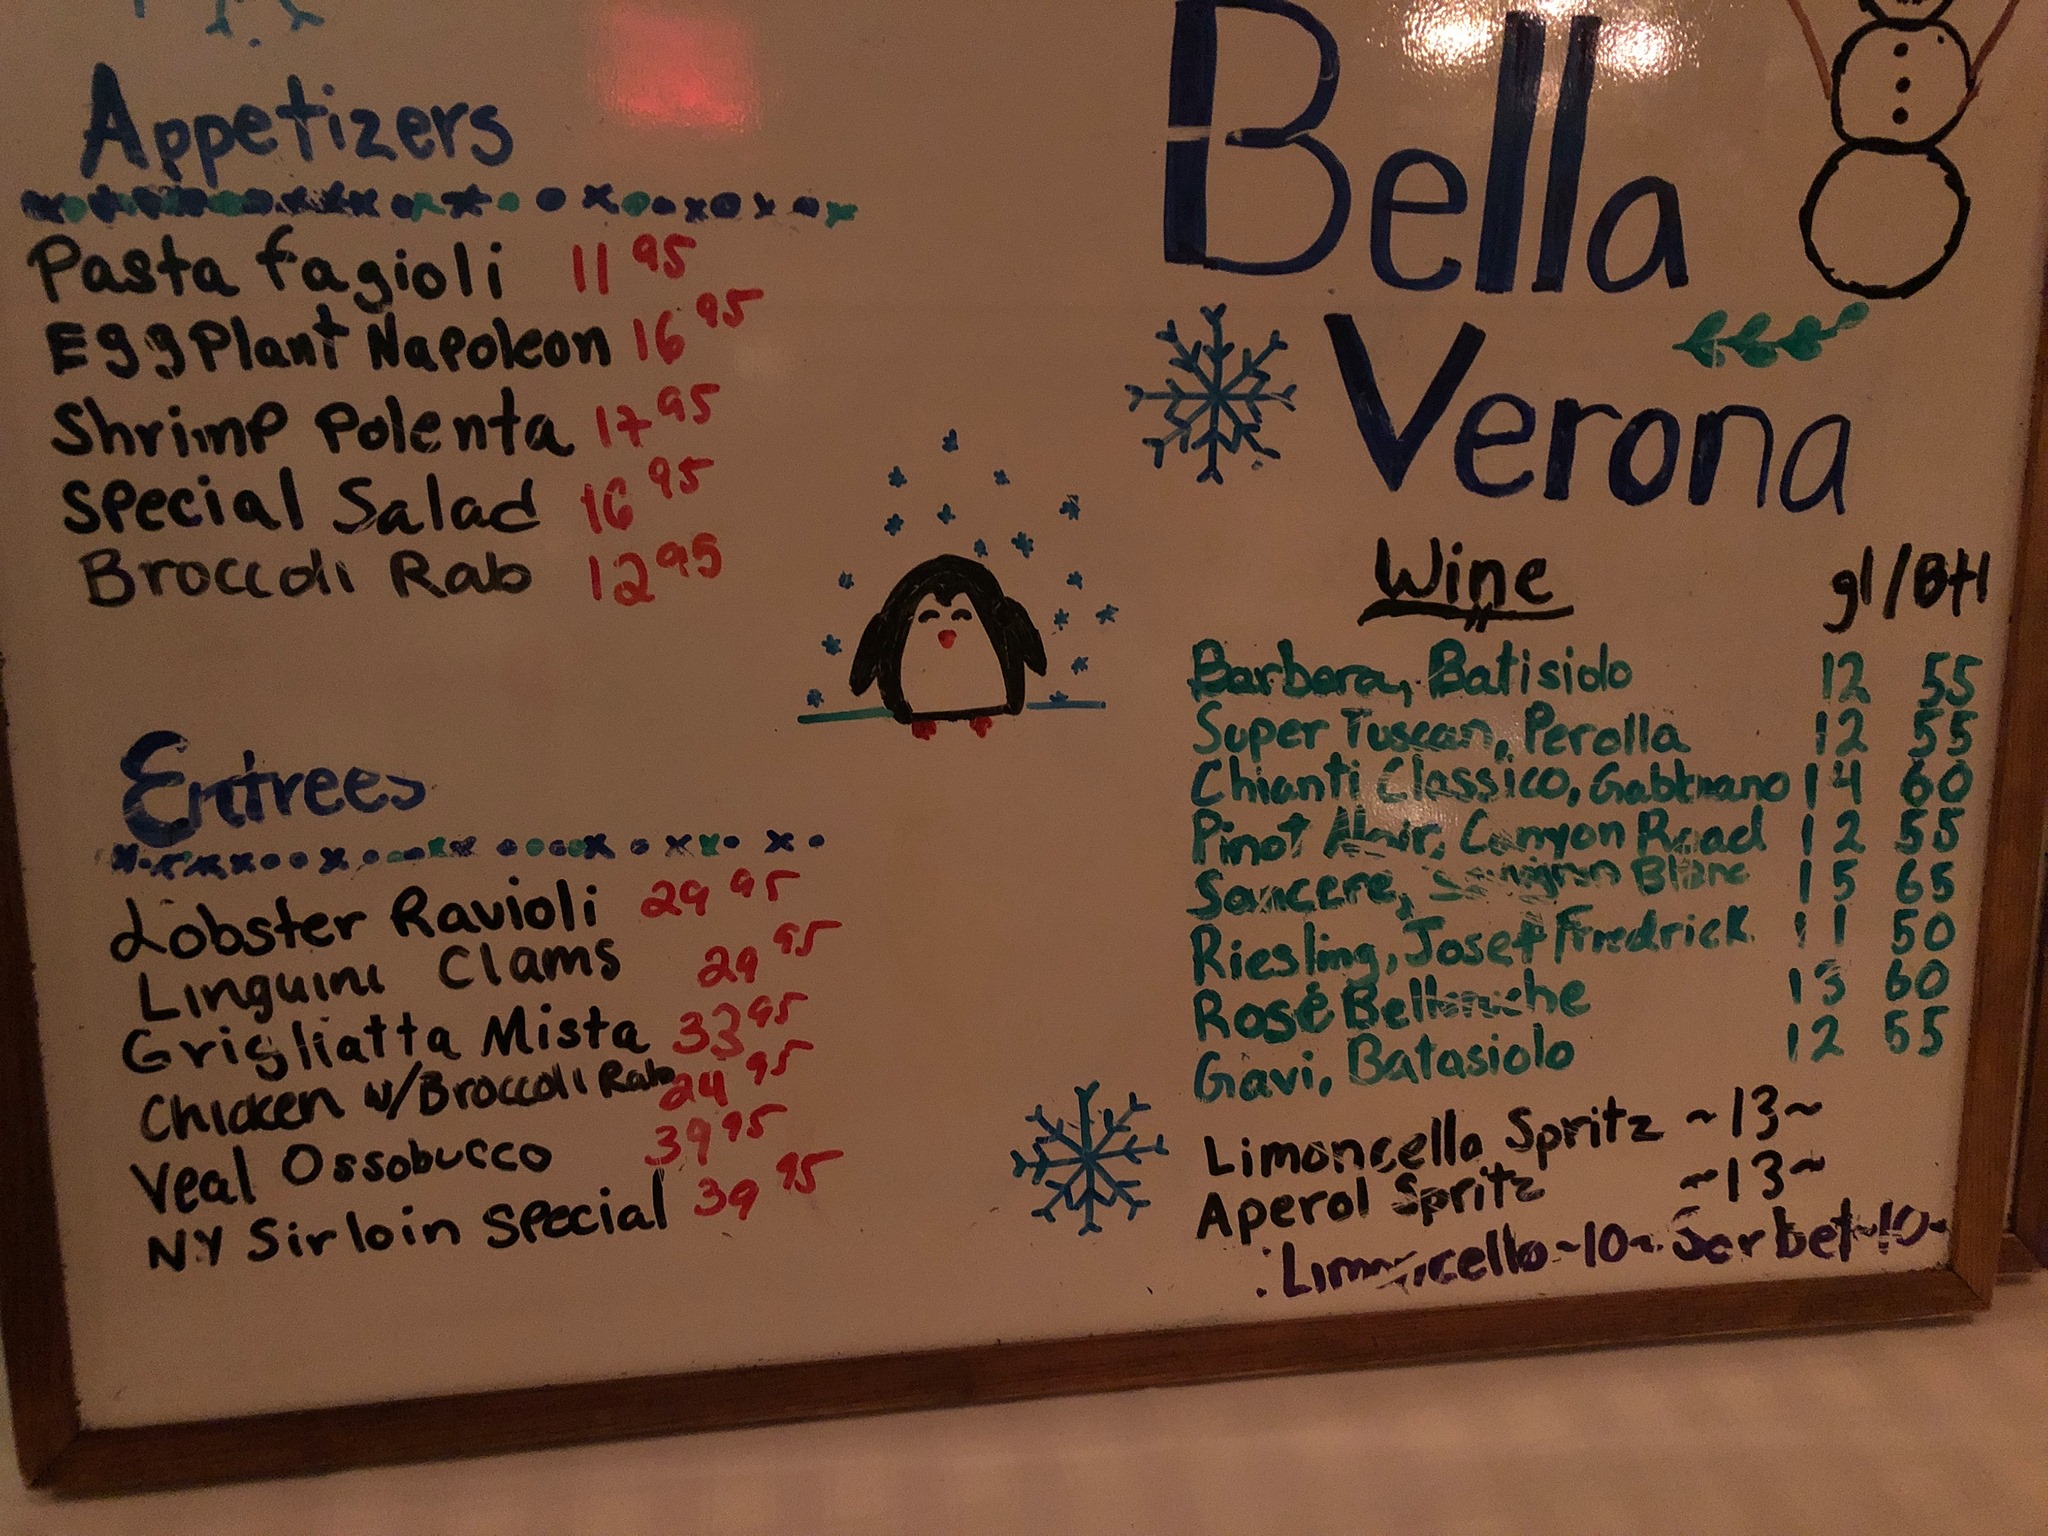 Appetizers
Pasta fagioli 11 95
EggPlant Napoleon 16 95
Shrimp Polenta 17 95
Special Salad 16 95
Broccoli Rab 12 95
Entrees
Lobster Ravioli 29 95
Linguini Clams 29 95
Grigliatta Mista 33 95
Chicken w/Broccoli Rab 24 95
Veal Ossobucco 39 95
NY Sirloin Special 39 95
Bella
Verona
Wine gl/Btl
Barbera, Batisiolo 12 55
Super Tuscan, Perolla 12 55
Chianti Classico, 14 60
Pinot Noir, Canyon Road 12 55
Sancere, Sauvignon Blanc 15 65
Riesling, Josef Fredrick 11 50
Rosé 13 60
Gavi, Batasiolo 12 55
Limoncello Spritz ~13~
Aperol Spritz ~13~
Limoncello ~10~ Sorbet ~10~